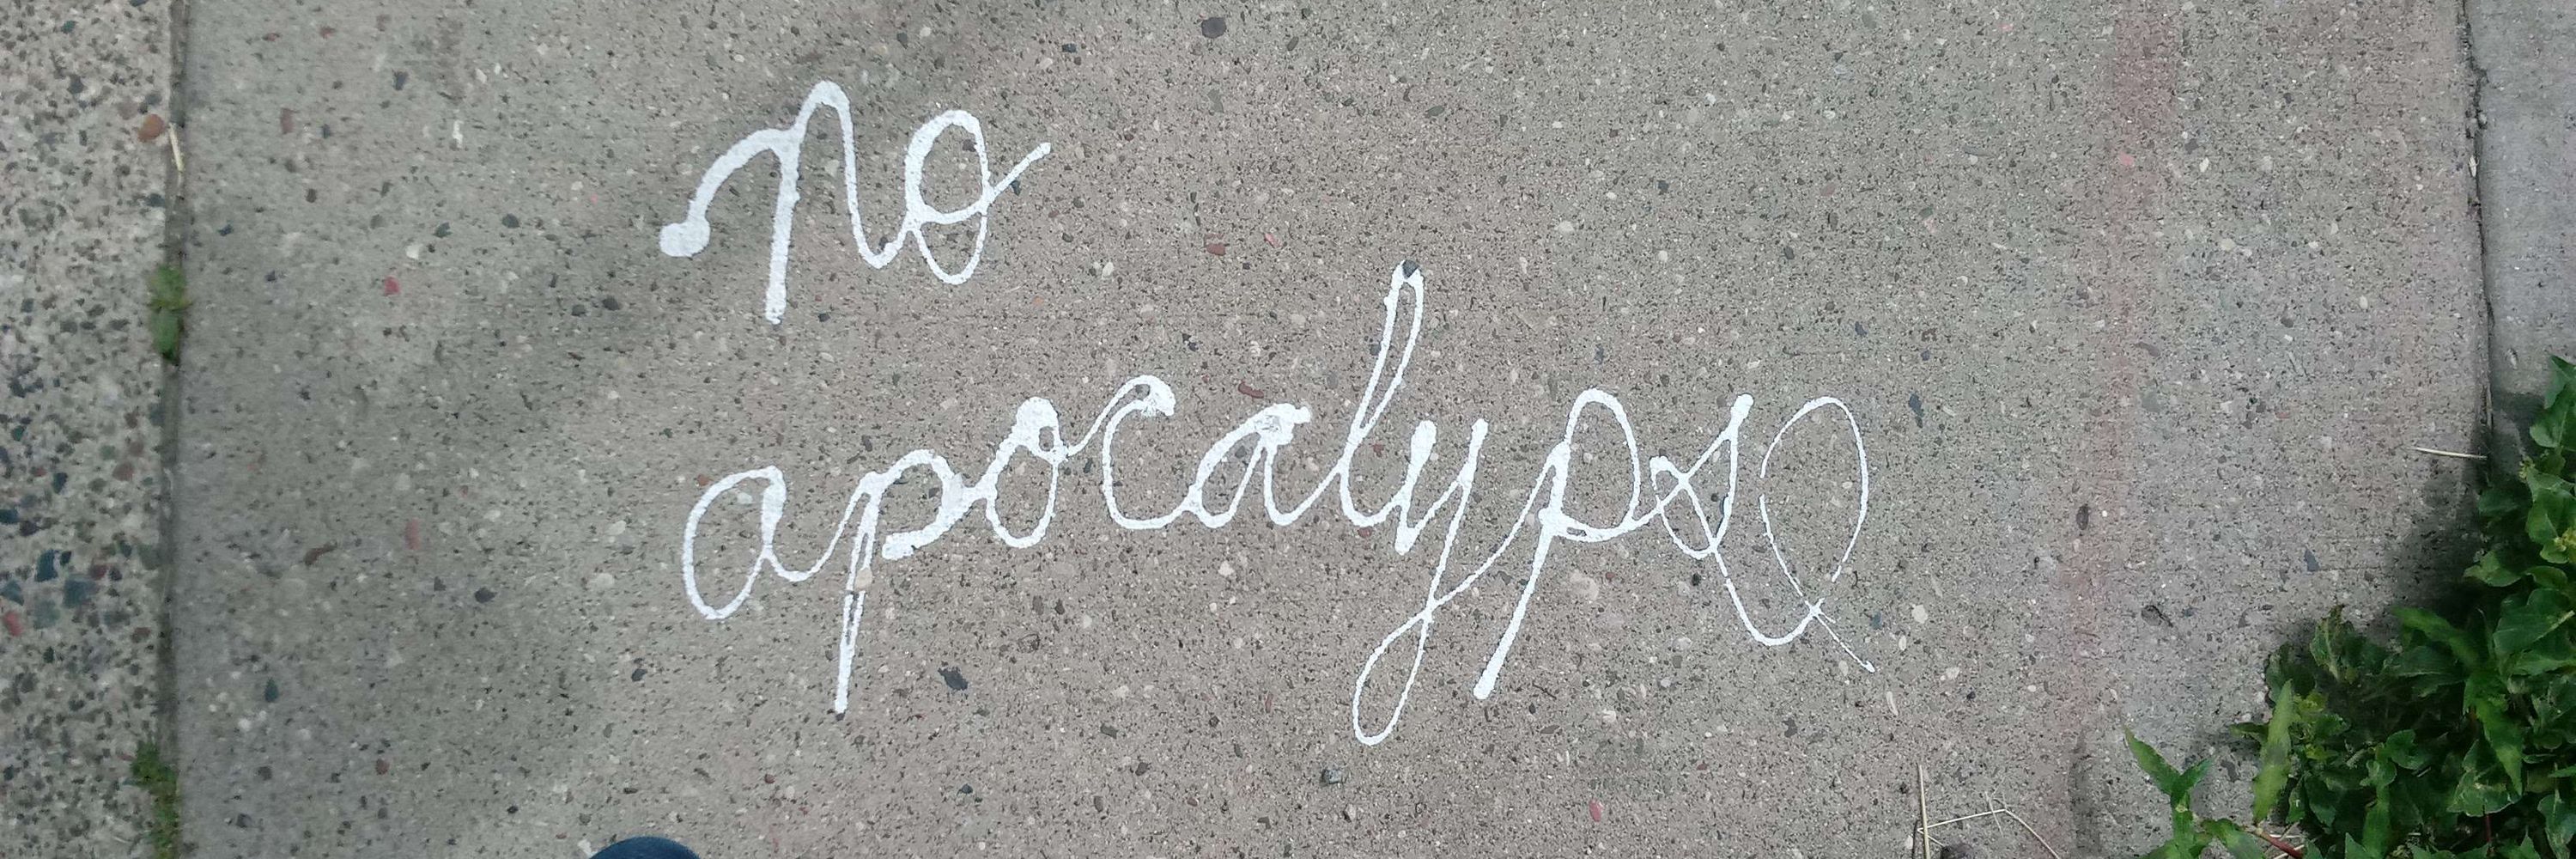 no
apocalypse